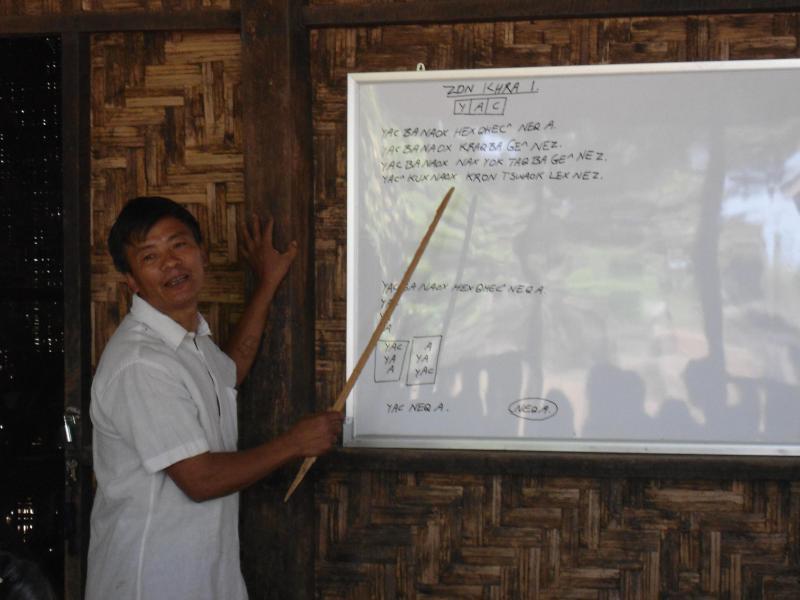 ZDN KHRA 1.
YAC
YAC BA NAOX HEXQHEC^ NEQ A.
YAC BA NAOX KRAQBA GE^ NEZ.
YAC BA NAOX NAX YOK TAQ BA GE^ NEZ.
YAC^ KUX NAOX KRON TSWAOK LEX NEZ.
YAC BA NAOX HEXQHEC^ NEQ A.
YA
A
YAC A
YA YA
A YAC
YAC NEQ A. NEQ A.